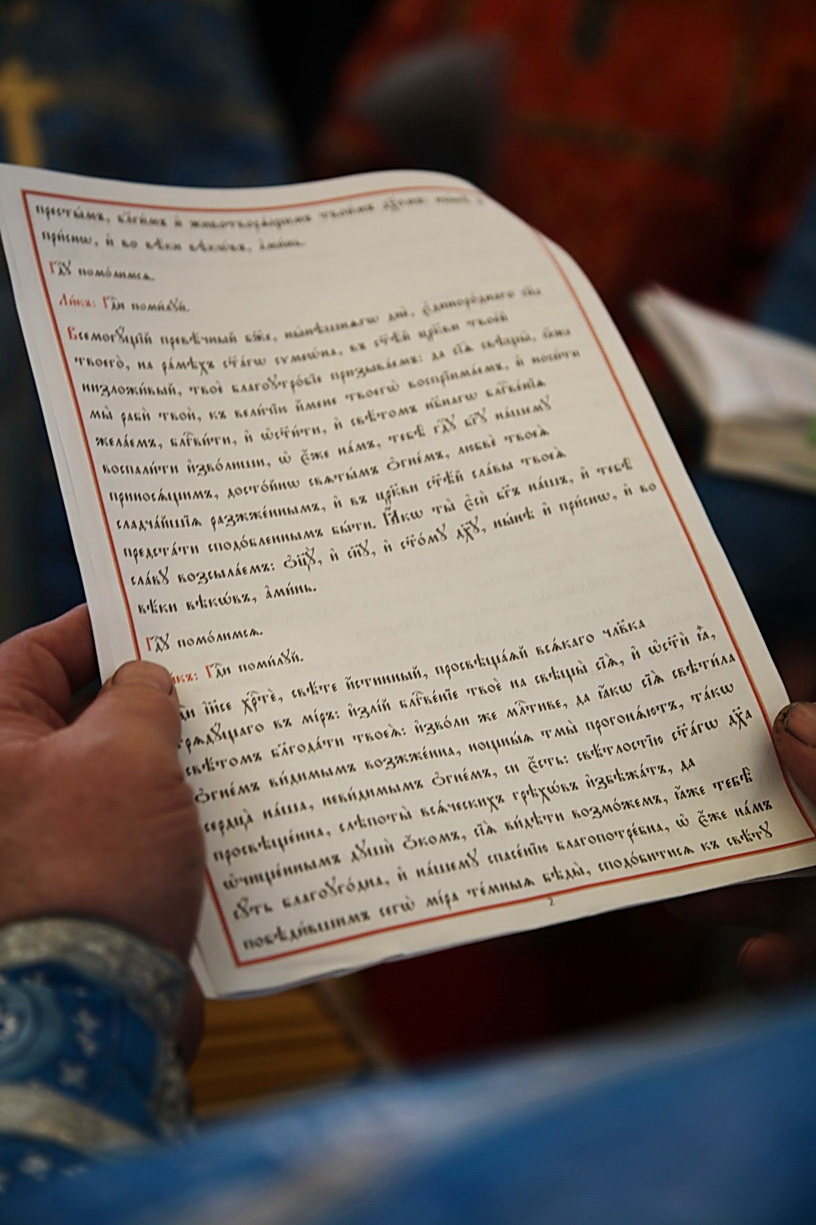 прест҃ы́мъ, бл҃ги́мъ и҆ животворѧ́щимъ твои́мъ дх҃омъ:
при́снѡ, и҆ во вѣ́ки вѣкѡ́въ, а҆ми́нь.
Гдⷭ҇ꙋ помо́лимсѧ.
Ли́къ: Гдⷭ҇и поми́лꙋй.
Всемогꙋ́щїй превѣ́чный бж҃е, ны́нѣшнѧгѡ днѐ, є҆диноро́днаго сн҃а
твоего̀, на ра́мѣхъ ст҃а́гѡ сѷмеѡ́на, въ ст҃ѣ́й цр҃кви твое́й
низложи́вый, твоѐ благоꙋтро́бїе призыва́емъ: да сїѧ̑ свѣщы̀, ꙗ҆̀же
мы̀ рабѝ твоѝ, къ вели́чїю и҆́мене твоегѡ̀ воспрїима́емъ, и҆ носи́ти
жела́емъ, бл҃гви́ти, и҆ ѡ҆ст҃и́ти, и҆ свѣ́томъ нбⷭ҇нагѡ бл҃гве́нїѧ
воспали́ти и҆зво́лиши, ѡ҆ є҆́же на́мъ, тебѣ̀ гдⷭ҇ꙋ бг҃ꙋ на́шемꙋ
приносѧ́щимъ, досто́йнѡ свѧты́мъ ѻ҆гне́мъ, любвѐ твоеѧ̀
сладча́йшїѧ разжже́ннымъ, и҆ въ цр҃кви ст҃ѣ́й сла́вы твоеѧ̀
предста́ти сподо́бленнымъ бы́ти. Ꙗ҆́кѡ ты̀ є҆сѝ бг҃ъ на́шъ, и҆ тебѣ̀
сла́вꙋ возсыла́емъ: ѻ҆ц҃ꙋ̀, и҆ сн҃ꙋ, и҆ ст҃о́мꙋ дх҃ꙋ, ны́нѣ и҆ при́снѡ, и҆ во
вѣ́ки вѣкѡ́въ, а҆ми́нь.
Гдⷭ҇ꙋ помо́лимсѧ.
Гдⷭ҇и поми́лꙋй.
і҆и҃се хрⷭ҇тѐ, свѣ́те и҆́стинный, просвѣща́ѧй всѧ́каго чл҃вѣка
грѧдꙋ́щаго въ мі́ръ: и҆злі́й бл҃гве́нїе твоѐ на свѣщы̀ сїѧ̑, и҆ ѡ҆ст҃ѝ ꙗ҆̀,
свѣ́томъ бл҃года́ти твоеѧ̀: и҆зво́ли же млⷭ҇тиве, да ꙗ҆́кѡ сїѧ̑ свѣти̑ла
ѻ҆гне́мъ ви́димымъ возжжє́нна, нощны́ѧ тмы̀ прогонѧ́ютъ, та́кѡ
сердца̀ на̑ша, неви́димымъ ѻ҆гне́мъ, си є҆́сть: свѣ́тлостїю ст҃а́гѡ дх҃а
просвѣщє́нна, слѣпоты̀ всѧ́ческихъ грѣхѡ́въ и҆збѣжа́тъ, да
ѡ҆чище́ннымъ дꙋшѝ ѻ҆́комъ, сїѧ̑ ви́дѣти возмо́жемъ, ꙗ҆̀же тебѣ̀
сꙋ́ть благоꙋгѡ́дна, и҆ на́шемꙋ спасе́нїю благопотрє́бна, ѡ҆ є҆́же на́мъ
побѣди́вшимъ сегѡ̀ мі́ра тє́мныѧ бѣды̑, сподо́битисѧ къ свѣ́тꙋ
2